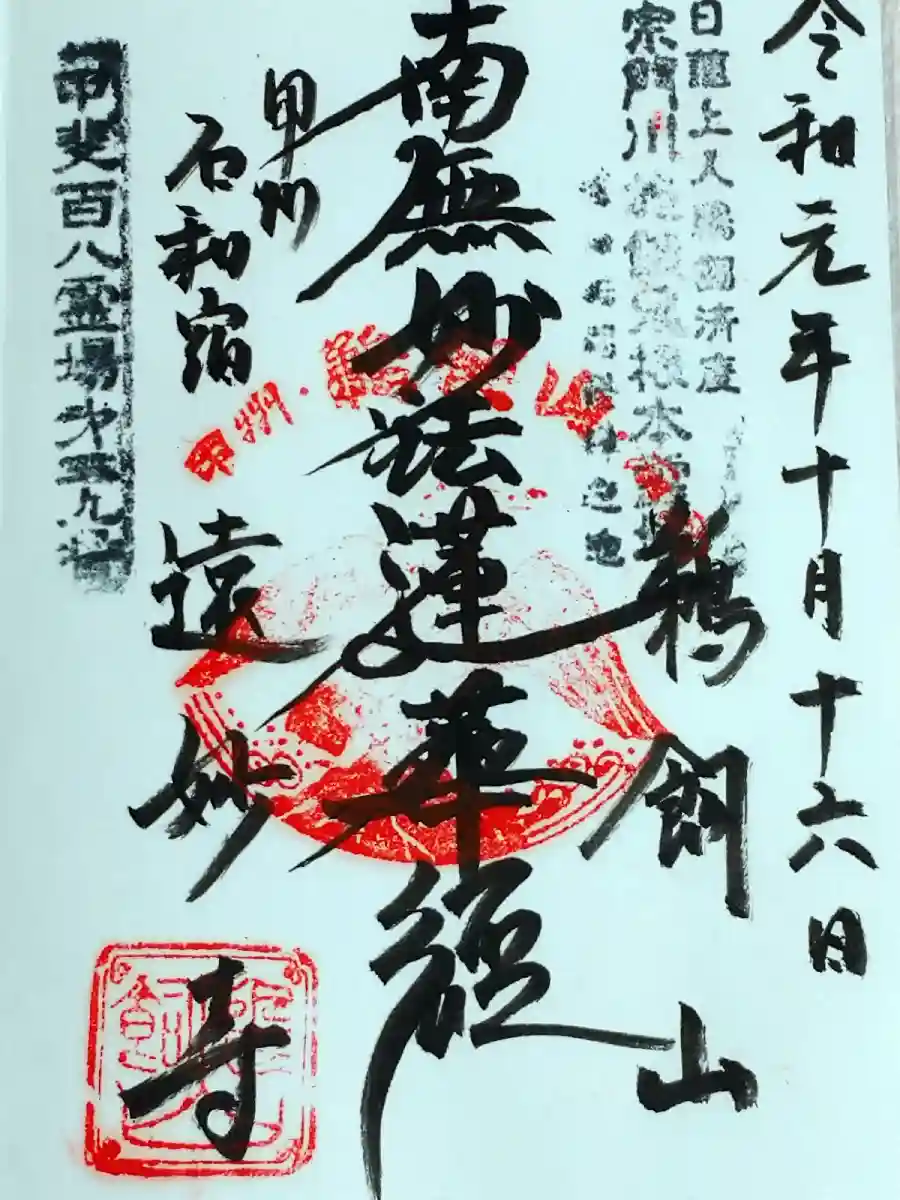 令和元年十月十六日
日蓮上人鵜飼済度
宗門川施餓鬼根本
鵜飼山
南無妙法蓮華経
甲州
石和宿
遠妙寺
甲斐百八霊場
甲州・鵜飼山